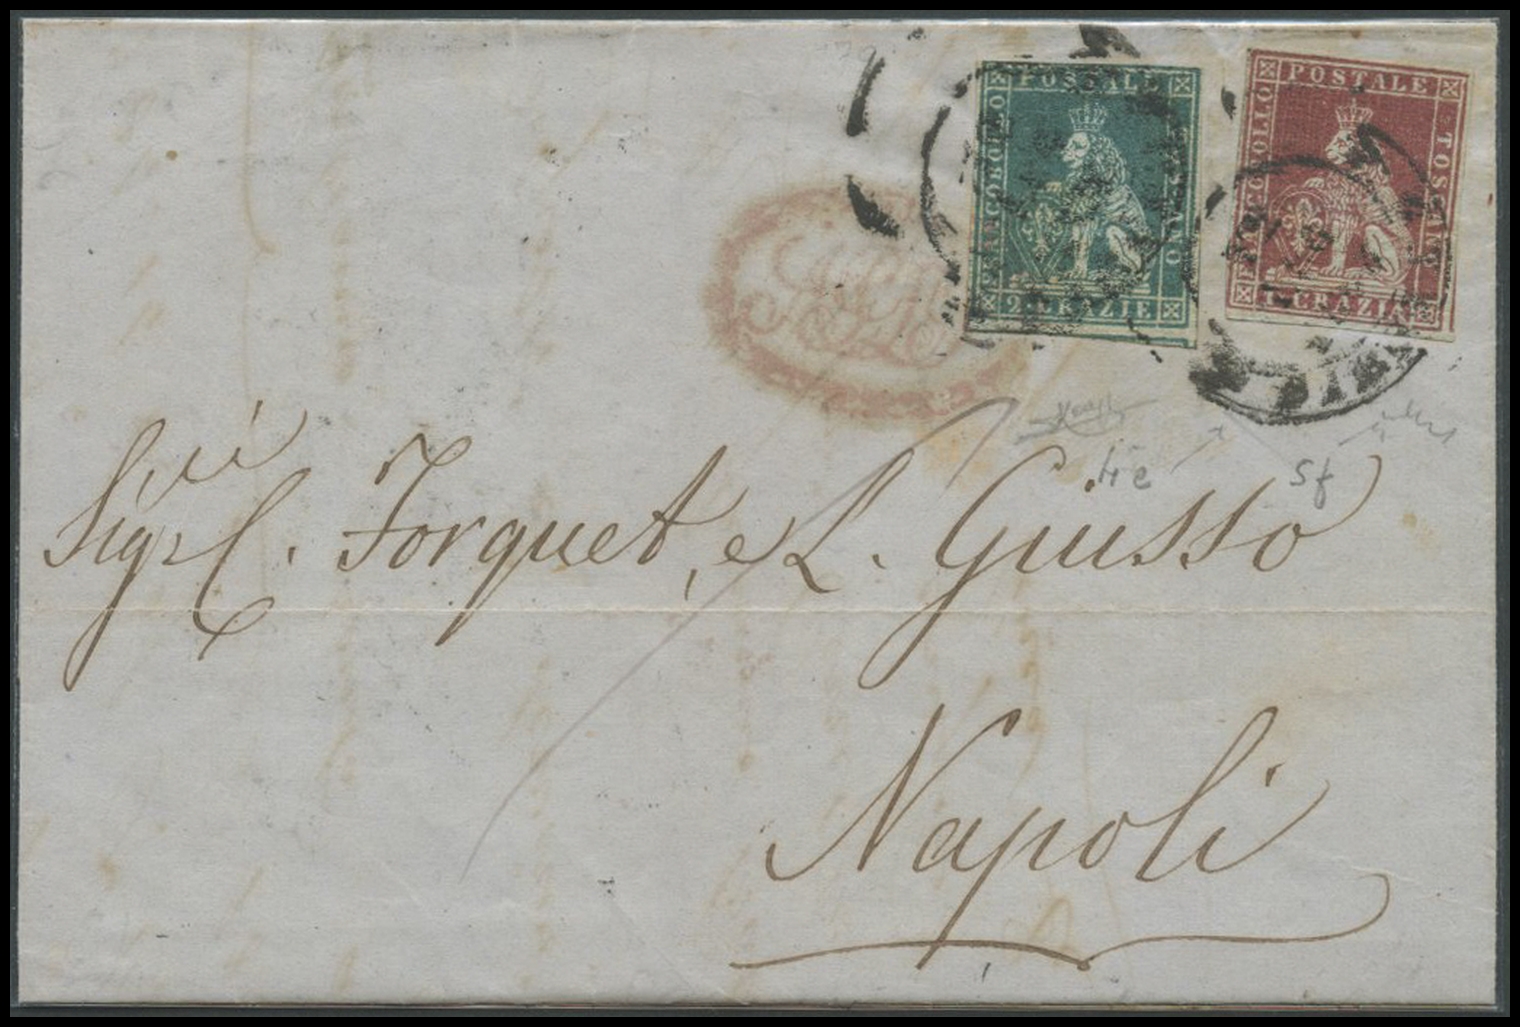 FRANCOBOLLO POSTALE TOSCANO
2 CRAZIE
FRANCOBOLLO POSTALE TOSCANO
1 CRAZIA
4 e
5 f
Sig.ri C. Forquet, e L. Giusso
Napoli